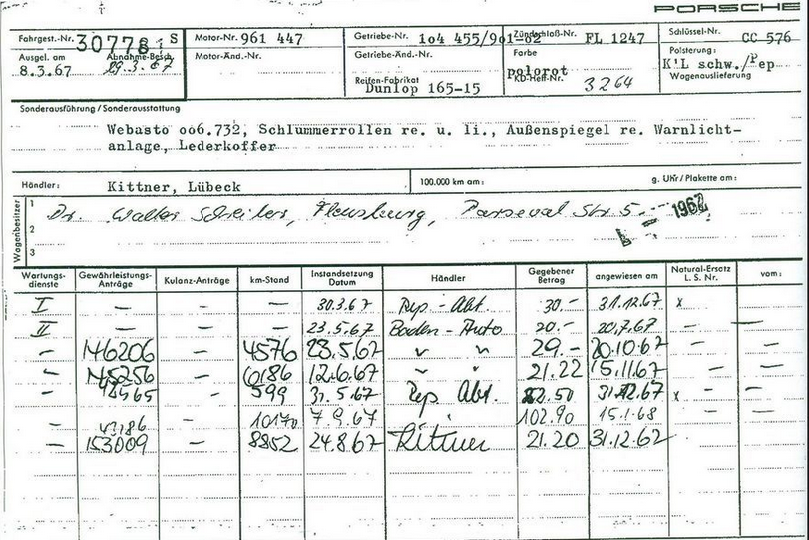 PORSCHE
Fahrgest.-Nr. 307781 S Motor-Nr. 961 447 Getriebe-Nr. 1o4 455/9o1-o2 Zündschloß-Nr. FL 1247 Schlüssel-Nr. CC 576
Ausgel. am 8.3.67 Abnahme-Besch. 29.3.67 Motor-Änd.-Nr. Getriebe-Änd.-Nr. Farbe polorot Polsterung: K'L schw./Pep
Reifen-Fabrikat Dunlop 165-15 KD-Heft-Nr. 3264 Wagenauslieferung
Sonderausführung / Sonderausstattung
Webasto oo6.732, Schlummerrollen re. u. li., Außenspiegel re. Warnlicht-
anlage, Lederkoffer
Händler: Kittner, Lübeck 100.000 km am: g. Uhr / Plakette am:
Wagenbesitzer
1 Dr. Walter Schreiber, Flensburg, Parseval Str 5. 1967
2
3
Wartungs-dienste Gewährleistungs-Anträge Kulanz-Anträge km-Stand Instandsetzung Datum Händler Gegebener Betrag angewiesen am Natural-Ersatz L. S. Nr. vom:
I — - — 30.3.67 Rep.-Abt. 30.- 31.12.67 x
II — - — 23.5.67 Baden-Auto 20.- 20.7.67 - —
- 146206 - 4576 23.5.67 " " 29.- 20.10.67 - -
- 145256 - 6186 12.6.67 " " 21.22 15.11.67 - -
- - 599 31.5.67 Rep. Abt. 31.12.67 x -
- - 10170 7.9.67 " 102.90 15.1.68 - -
- 153009 - 8852 24.8.67 Kittner 21.20 31.12.62